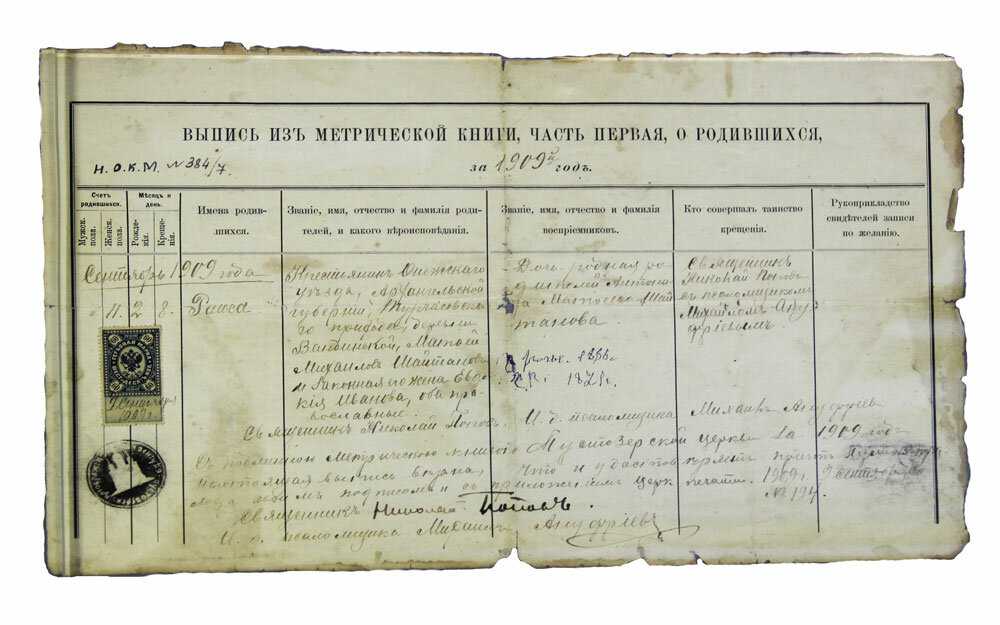 ВЫПИСЬ ИЗЪ МЕТРИЧЕСКОЙ КНИГИ, ЧАСТЬ ПЕРВАЯ, О РОДИВШИХСЯ,
Н.О.К.М. № 384/7.
за 1909й годъ.
Счетъ родившихся.
Мужеск. пола.
Женск. пола.
Мѣсяцъ и день.
Рожденія.
Крещенія.
Имена родившихся.
Званіе, имя, отчество и фамилія родителей, и какого вѣроисповѣданія.
Званіе, имя, отчество и фамилія воспріемниковъ.
Кто совершалъ таинство крещенія.
Рукоприкладство свидѣтелей записи по желанію.
Сентябрь 1909 года
2. 8. Раиса
Крестьянинъ Онежскаго
уѣзда, Архангельской
губерніи,
го прихода, деревни
Матвѣй
Михайловъ Шайтановъ
и законная его жена Евдо
кія Иванова, оба пра
вославные.
Дочь родная ро
дителей Антони
на Матвѣева Шай
танова.
1878г.
Священникъ
Николай Поповъ
съ псаломщикомъ
Михаиломъ Ану
фріевымъ.
9 Сентября
1909 г.
Священникъ Николай Поповъ. И. д. псаломщика Михаилъ Ануфріевъ
Съ подлинною метрическою книгою церкви за 1909 годъ
настоящая выпись вѣрна, что и удостовѣряетъ причтъ
подписомъ и съ приложеніемъ церк. печати. 1909 г. 9 Сентября
№ 194.
Священникъ Николай Поповъ.
И. д. псаломщика Михаилъ Ануфріевъ